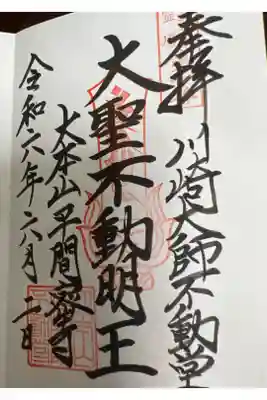 奉拝 川崎大師不動堂
大聖不動明王
大本山平間寺
令和六年六月二日